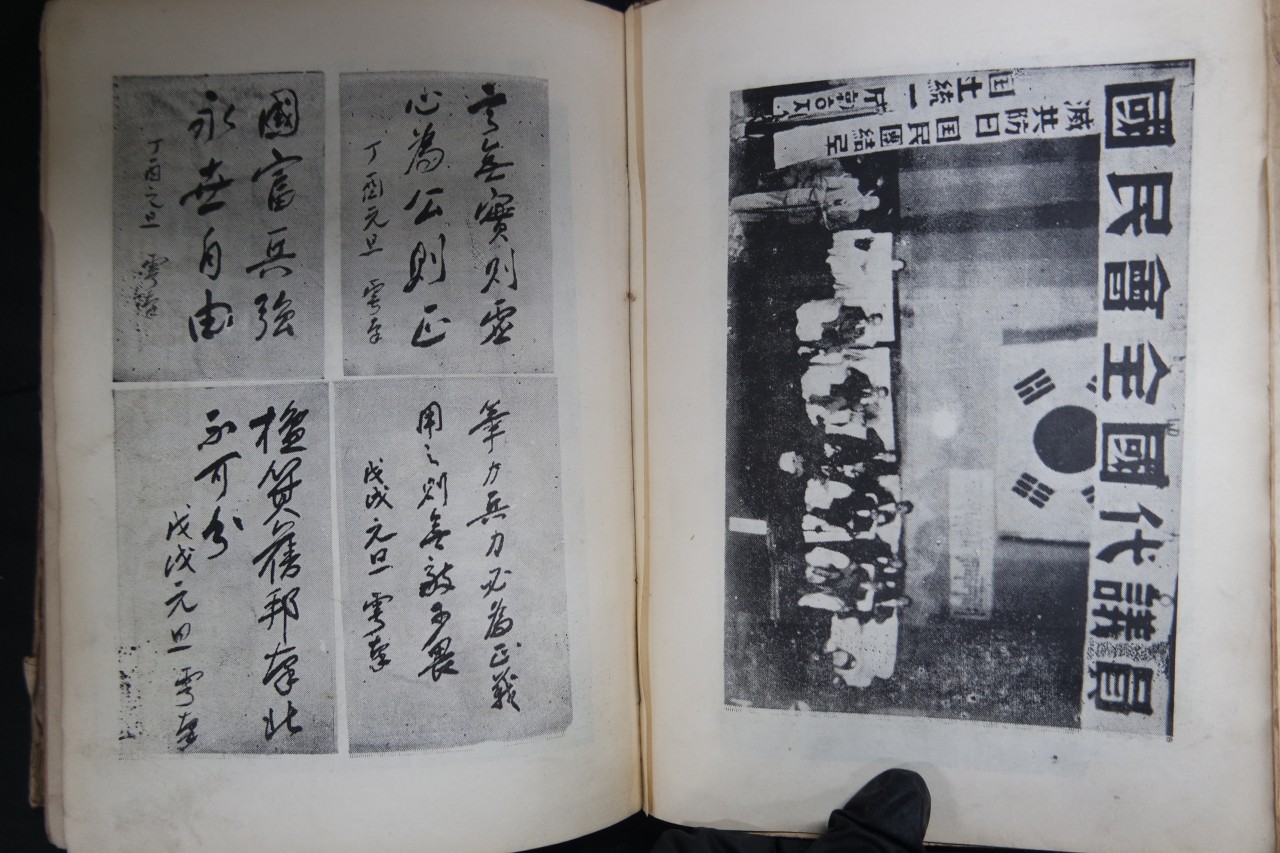 言無實則虛
心為公則正
丁酉元旦 雩南
國富兵強
永世自由
丁酉元旦 雩南
筆力兵力必為正義
用之則無敵不畏
戊戌元旦 雩南
檀箕舊邦南北
不可分
戊戌元旦 雩南
國民會全國代議員
滅共防日国民團結로
国土統一